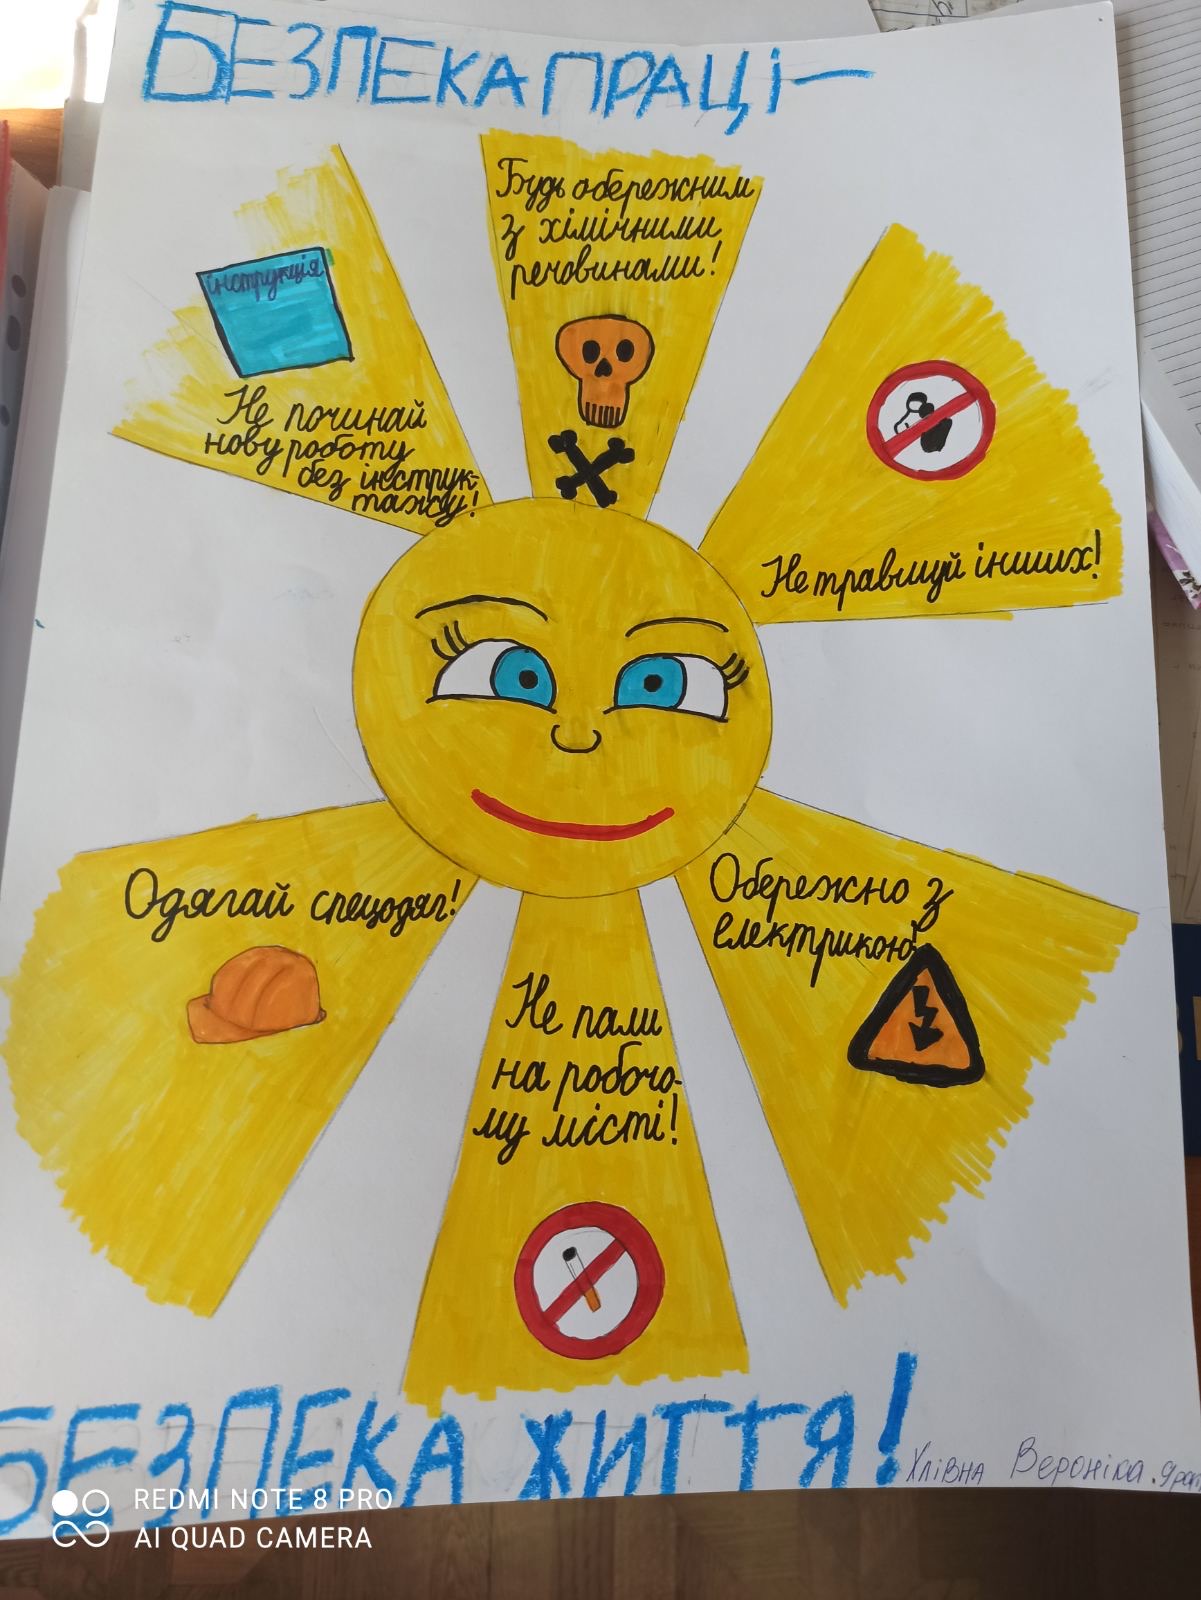 БЕЗПЕКА ПРАЦІ —
Будь обережним
з хімічними
речовинами!
інструкція
Не починай
нову роботу
без інструк-
тажу!
Не травмуй інших!
Одягай спецодяг!
Обережно з
електрикою!
Не пали
на робочо-
му місті!
БЕЗПЕКА ЖИТТЯ!
Хлівна Вероніка. 9
REDMI NOTE 8 PRO
AI QUAD CAMERA